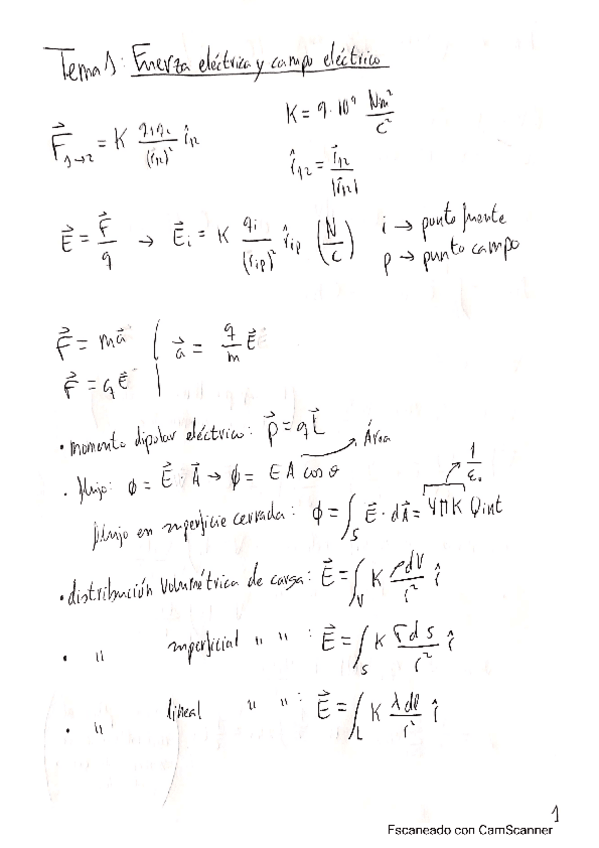 Tema 1: Fuerza eléctrica y campo eléctrico
F⃗₁→₂ = K q₁q₂/(r₁₂)² r̂₁₂
K = 9·10⁹ Nm²/C²
r̂₁₂ = r⃗₁₂/|r⃗₁₂|
E⃗ = F⃗/q → E⃗i = K qi/(rip)² r̂ip (N/C)
i → punto fuente
p → punto campo
F⃗ = ma⃗
F⃗ = qE⃗
a⃗ = q/m E⃗
· momento dipolar eléctrico: p⃗ = qL⃗
· flujo: ϕ = E⃗ · A⃗ → ϕ = E A cos θ
Área
flujo en superficie cerrada: ϕ = ∫S E⃗ · dA⃗ = 4πK Qint
1/ε₀
· distribución volumétrica de carga: E⃗ = ∫V K ρdV/r² r̂
· " superficial " " : E⃗ = ∫S K σds/r² r̂
· " lineal " " : E⃗ = ∫L K λdl/r² r̂
1
Escaneado con CamScanner